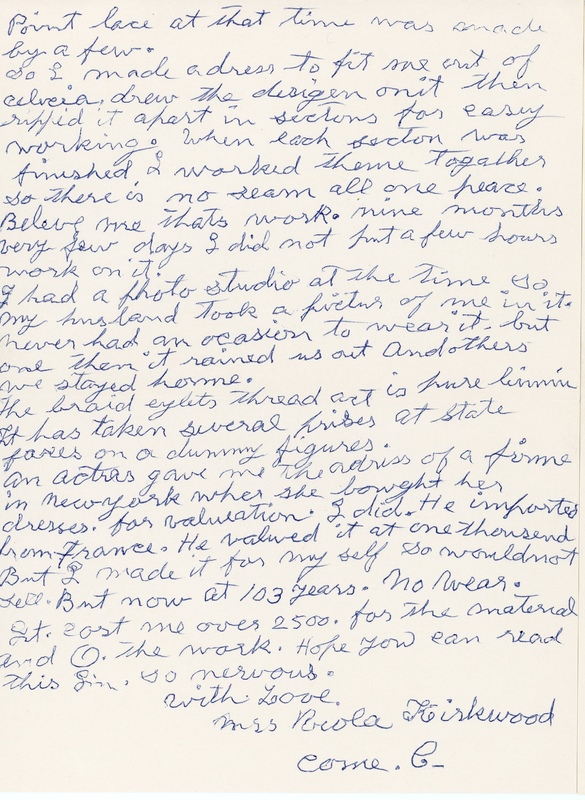 Point lace at that time was made
by a few.
So I made a dress to fit me out of
celvcia, drew the desigen on it then
rippid it apart in sectons for easiy
working. When each secton was
finished I worked theme togather
so there is no seam all one peace.
Beleve me thats work. nine months
very few days I did not put a few hours
work on it.
I had a photo studio at the time so
my husband took a pictur of me in it.
never had an ocasion to wear it. but
one then it rained us out and others
we stayed home.
The braid eylits thread act is pure linnin
It has taken several prises at state
faires on a dummy figures.
an actras gave me the adriss of a firme
in new york wher she bought her
dresses. for valuation. I did. He imported
from France. He valued it at one thousend
But I made it for my self so would not
sell. But now at 103 years. No wear.
It. cost me over 2500. for the material
and O. the work. Hope you can read
this Im. so nervous.
with Love.
Mrs Kirkwood
come. C-